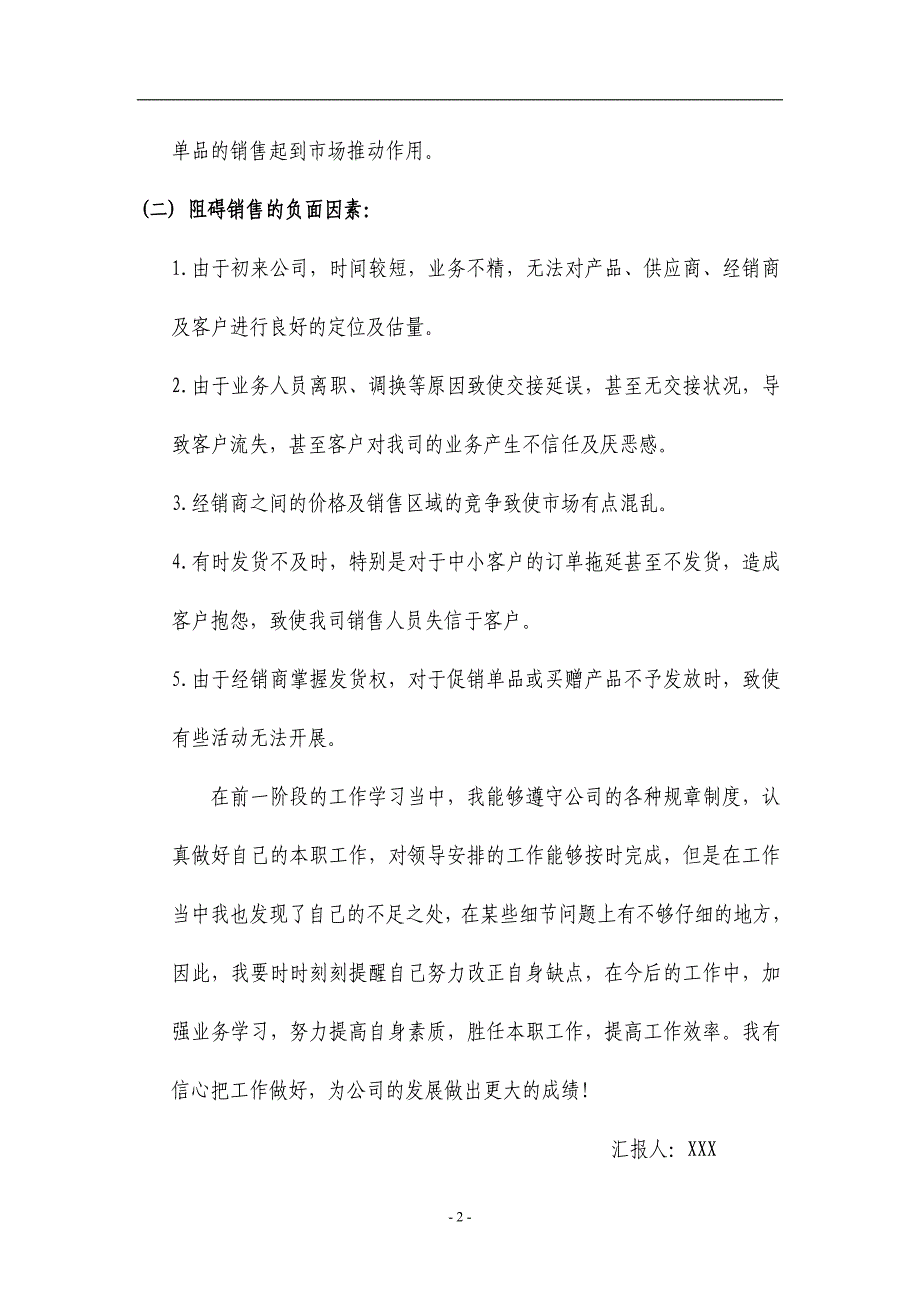 单品的销售起到市场推动作用。
(二) 阻碍销售的负面因素：
1.由于初来公司，时间较短，业务不精，无法对产品、供应商、经销商
及客户进行良好的定位及估量。
2.由于业务人员离职、调换等原因致使交接延误，甚至无交接状况，导
致客户流失，甚至客户对我司的业务产生不信任及厌恶感。
3.经销商之间的价格及销售区域的竞争致使市场有点混乱。
4.有时发货不及时，特别是对于中小客户的订单拖延甚至不发货，造成
客户抱怨，致使我司销售人员失信于客户。
5.由于经销商掌握发货权，对于促销单品或买赠产品不予发放时，致使
有些活动无法开展。
在前一阶段的工作学习当中，我能够遵守公司的各种规章制度，认
真做好自己的本职工作，对领导安排的工作能够按时完成，但是在工作
当中我也发现了自己的不足之处，在某些细节问题上有不够仔细的地方，
因此，我要时时刻刻提醒自己努力改正自身缺点，在今后的工作中，加
强业务学习，努力提高自身素质，胜任本职工作，提高工作效率。我有
信心把工作做好，为公司的发展做出更大的成绩！
汇报人：XXX
- 2 -